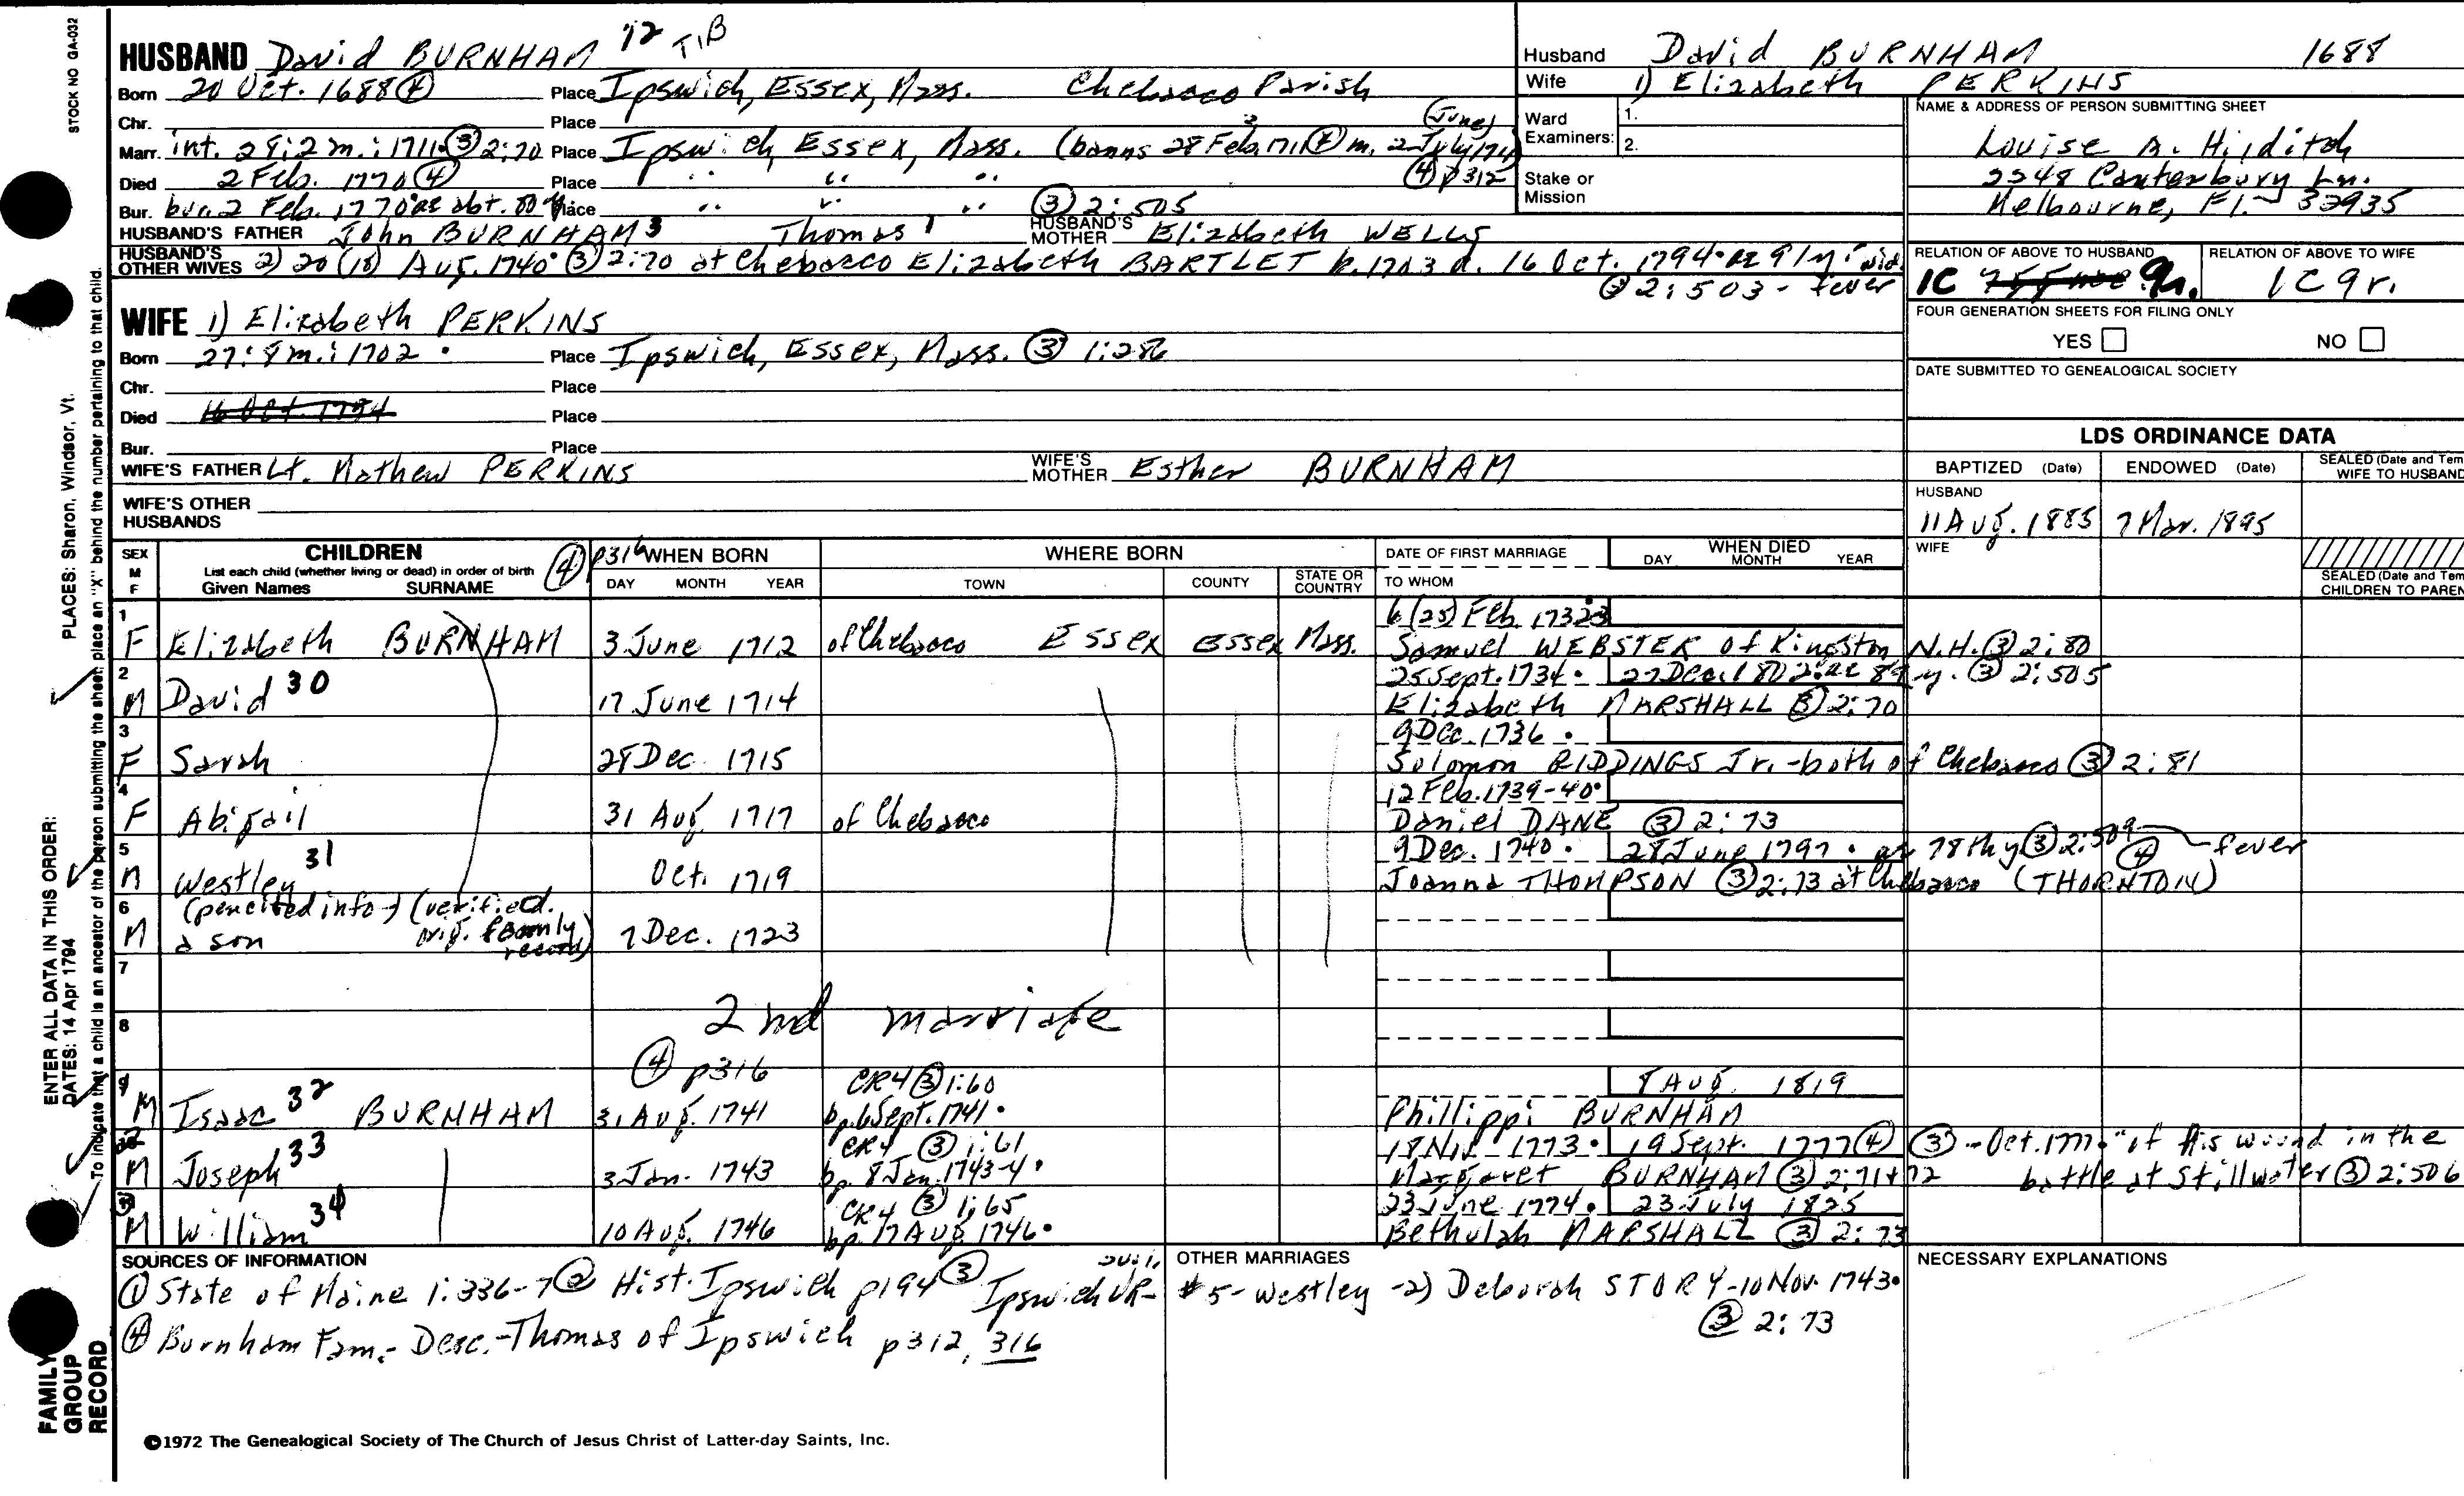 HUSBAND David BURNHAM 12 T,B
Born 20 Oct. 1688 (4) Place Ipswich, Essex, Mass. Chebacco Parish
Chr. Place
Marr. int. 28:2m.:1711. (3) 2:70 Place Ipswich, Essex, Mass. (banns 28 Feb. 1711 (4) m. 2 July 1711 (June)
Died 2 Feb. 1770 (4) Place " " " (4) p312
Bur. bur. 2 Feb. 1770 ae abt. 80 y. Place " " " (3) 2:505
HUSBAND'S FATHER John BURNHAM 3 Thomas 1 HUSBAND'S MOTHER Elizabeth WELLS
HUSBAND'S OTHER WIVES 2) 20 (18) Aug. 1740. (3) 2:70 at Chebacco Elizabeth BARTLET b. 1703 d. 16 Oct. 1794. ae 91 y. wid.
(3) 2:503 - fever
WIFE 1) Elizabeth PERKINS
Born 27:8m.:1702. Place Ipswich, Essex, Mass. (3) 1:286
Chr. Place
Died 16 Oct. 1794 Place
Bur. Place
WIFE'S FATHER Lt. Mathew PERKINS WIFE'S MOTHER Esther BURNHAM
WIFE'S OTHER HUSBANDS
Husband David BURNHAM 1688
Wife 1) Elizabeth PERKINS
Ward Examiners: 1. 2.
Stake or Mission
NAME & ADDRESS OF PERSON SUBMITTING SHEET
Louise A. Hilditch
2248 Canterbury Ln.
Melbourne, Fl. 32935
RELATION OF ABOVE TO HUSBAND RELATION OF ABOVE TO WIFE
1C 9r. 1C 9r.
FOUR GENERATION SHEETS FOR FILING ONLY
YES NO
DATE SUBMITTED TO GENEALOGICAL SOCIETY
LDS ORDINANCE DATA
BAPTIZED (Date) ENDOWED (Date) SEALED (Date and Tem WIFE TO HUSBAND
HUSBAND
11 Aug. 1885 7 Mar. 1895
WIFE
SEALED (Date and Tem CHILDREN TO PAREN
SEX M F CHILDREN List each child (whether living or dead) in order of birth Given Names SURNAME (4) p316 WHEN BORN DAY MONTH YEAR WHERE BORN TOWN COUNTY STATE OR COUNTRY DATE OF FIRST MARRIAGE TO WHOM WHEN DIED DAY MONTH YEAR
1 6 (25) Feb. 1732-3
F Elizabeth BURNHAM 3 June 1712 of Chebacco Essex Essex Mass. Samuel WEBSTER of Kingston N.H. (3) 2:80
2 25 Sept. 1734. 27 Dec. 1802. ae 89 y. (3) 2:505
M David 30 17 June 1714 Elizabeth MARSHALL (3) 2:70
3 9 Dec. 1736.
F Sarah 28 Dec. 1715 Solomon GIDDINGS Jr. - both of Chebacco (3) 2:81
4 12 Feb. 1739-40.
F Abigail 31 Aug. 1717 of Chebacco Daniel DANE (3) 2:73
5 9 Dec. 1740. 28 June 1797. ae 78th y (3) 2:509 (4) fever
M Westley 31 Oct. 1719 Joanna THOMPSON (3) 2:73 at Chebacco (THORNTON)
6 (pencilled info) (verified. orig. family record)
M a son 7 Dec. 1723
7
8 2nd marriage
(4) p316 CR4 (3) 1:60 8 Aug. 1819
9 M Isaac 32 BURNHAM 31 Aug. 1741 bp. 6 Sept. 1741. Phillippi BURNHAM
CR4 (3) 1:61 18 Nov. 1773. 19 Sept. 1777 (4) (3) - Oct. 1777. "of his wound in the
M Joseph 33 3 Jan. 1743 bp. 8 Jan. 1743-4. Margaret BURNHAM (3) 2:71+72 battle at Stillwater (3) 2:506
CR4 (3) 1:65 23 June 1774. 23 July 1825
M William 34 10 Aug. 1746 bp. 17 Aug. 1746. Bethulah MARSHALL (3) 2:73
SOURCES OF INFORMATION
(1) State of Maine 1:336-7 (2) Hist. Ipswich p194 (3) Ipswich VR-
(4) Burnham Fam.- Desc.-Thomas of Ipswich p312, 316
OTHER MARRIAGES
#5-Westley -2) Deborah STORY-10 Nov. 1743.
(3) 2:73
NECESSARY EXPLANATIONS
©1972 The Genealogical Society of The Church of Jesus Christ of Latter-day Saints, Inc.
STOCK NO GA-032
PLACES: Sharon, Windsor, Vt.
To indicate that a child is an ancestor of the person submitting the sheet, place an "X" behind the number pertaining to that child.
ENTER ALL DATA IN THIS ORDER:
DATES: 14 Apr 1794
FAMILY GROUP RECORD